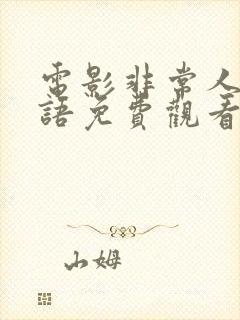 電影非常人
語免費觀看
山姆